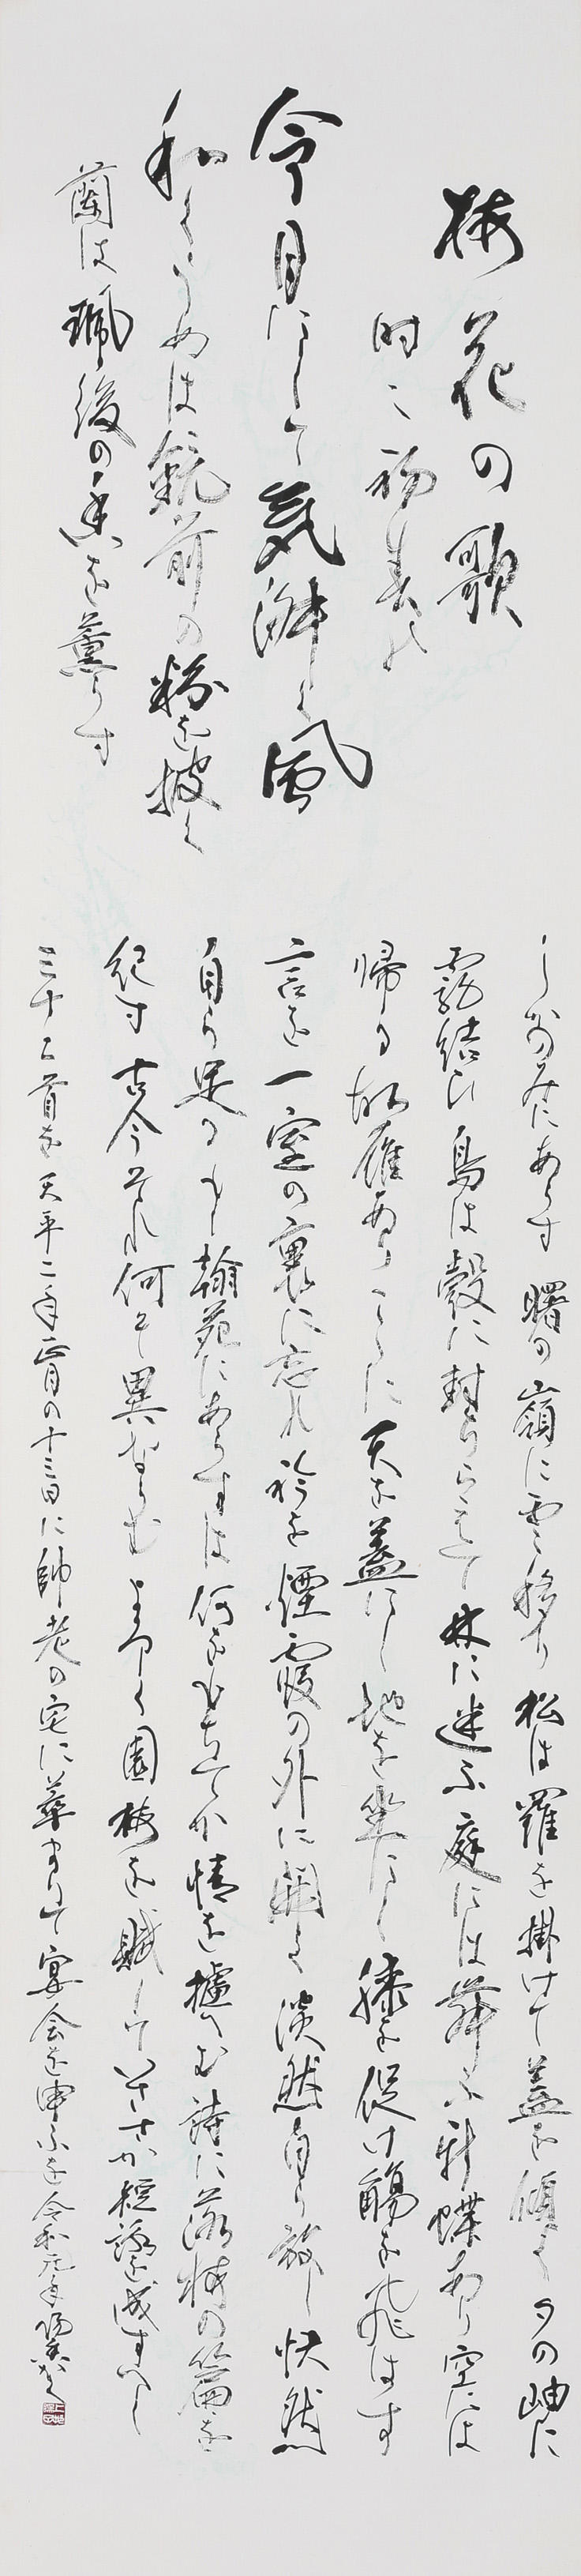 梅花の歌
時に初春の
令月にして気淑く風
和らくうめは鏡前の粉を披く
蘭は珮後の香を薫らす
しかのみにあらす曙の嶺に雲移り松は羅を掛けて蓋を傾く夕の岫に
霧結ひ鳥は縠に封らえて林に迷ふ庭には舞ふ新蝶あり空には
帰る故雁ありここに天を蓋にし地を坐にし膝を促け觴を飛はす
言を一室の裏に忘れ衿を煙霞の外に開く淡然自ら放し快然
自ら足るもし翰苑にあらすは何をもちてか情を攄へむ詩に落梅の篇を
紀す古今それ何そ異ならむよろしく園梅を賦していささか短詠を成すへし
三十二首を天平二年正月の十三日に帥老の宅に萃まりて宴会を申ふを令和元年